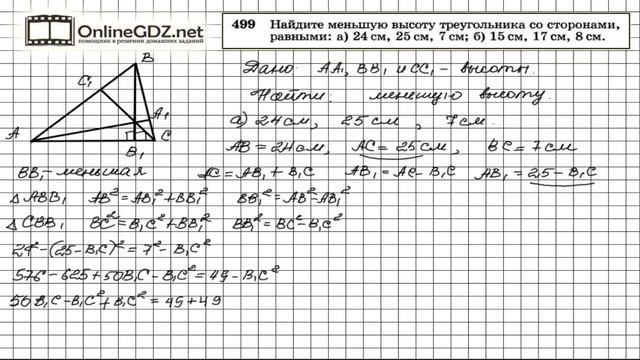 OnlineGDZ.net
помощник в решении домашних заданий
499 Найдите меньшую высоту треугольника со сторонами,
равными: а) 24 см, 25 см, 7 см; б) 15 см, 17 см, 8 см.
B
C₁
A₁
A
B₁
C
Дано: AA₁, BB₁ и CC₁ - высоты.
Найти: меньшую высоту.
а) 24 см, 25 см, 7 см.
AB = 24 см, AC = 25 см, BC = 7 см
BB₁ - меньшая
AC = AB₁ + B₁C AB₁ = AC - B₁C AB₁ = 25 - B₁C
△ABB₁ AB² = AB₁² + BB₁² BB₁² = AB² - AB₁²
△CBB₁ BC² = B₁C² + BB₁² BB₁² = BC² - B₁C²
24² - (25 - B₁C)² = 7² - B₁C²
576 - 625 + 50B₁C - B₁C² = 49 - B₁C²
50B₁C - B₁C² + B₁C² = 49 + 49